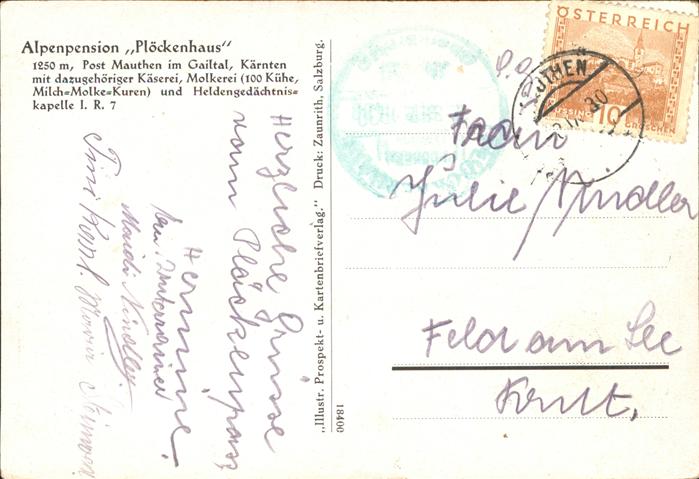 Alpenpension „Plöckenhaus"
1250 m, Post Mauthen im Gailtal, Kärnten
mit dazugehöriger Käserei, Molkerei (100 Kühe,
Milch=Molke=Kuren) und Heldengedächtnis=
kapelle I. R. 7
Herzliche Grüsse
vom Plöckenpass
Hermine.
Maridi Nindler
Tini
Maria
„Illustr. Prospekt- u. Kartenbriefverlag." Druck: Zaunrith, Salzburg.
18400
ÖSTERREICH
10
GROSCHEN
UTHEN
Frau
Julie Nindler
Feld am See
Krnt.